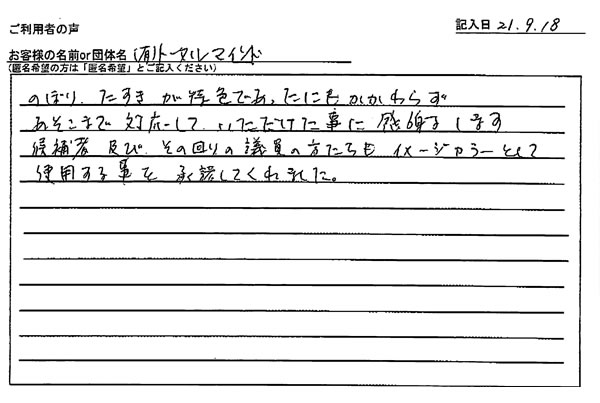 ご利用者の声
記入日 21.9.18
お客様の名前or団体名 (有)トータルマインド
(匿名希望の方は「匿名希望」とご記入ください)
のぼり、たすきが特色であったにもかかわらず
あそこまで対応して、いただけた事に感謝します
候補者及び、その回りの議員の方たちもイメージカラーとして
使用する事を承諾してくれました。